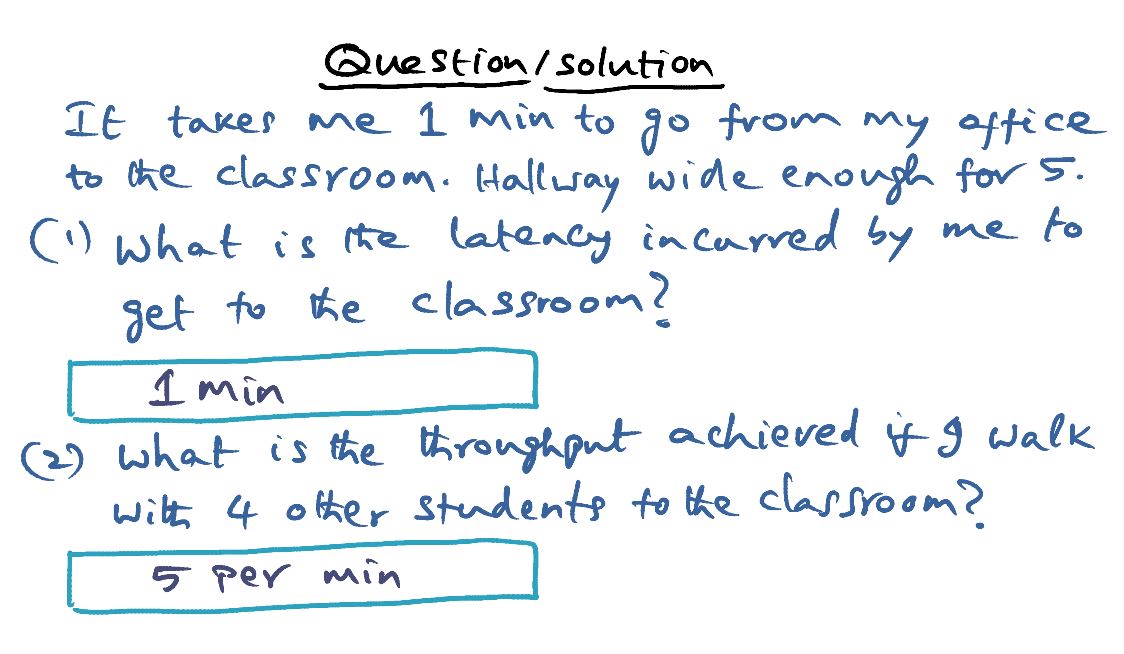 Question/solution
It takes me 1 min to go from my office
to the classroom. Hallway wide enough for 5.
(1) What is the latency incurred by me to
get to the classroom?
1 min
(2) What is the throughput achieved if I walk
with 4 other students to the classroom?
5 per min